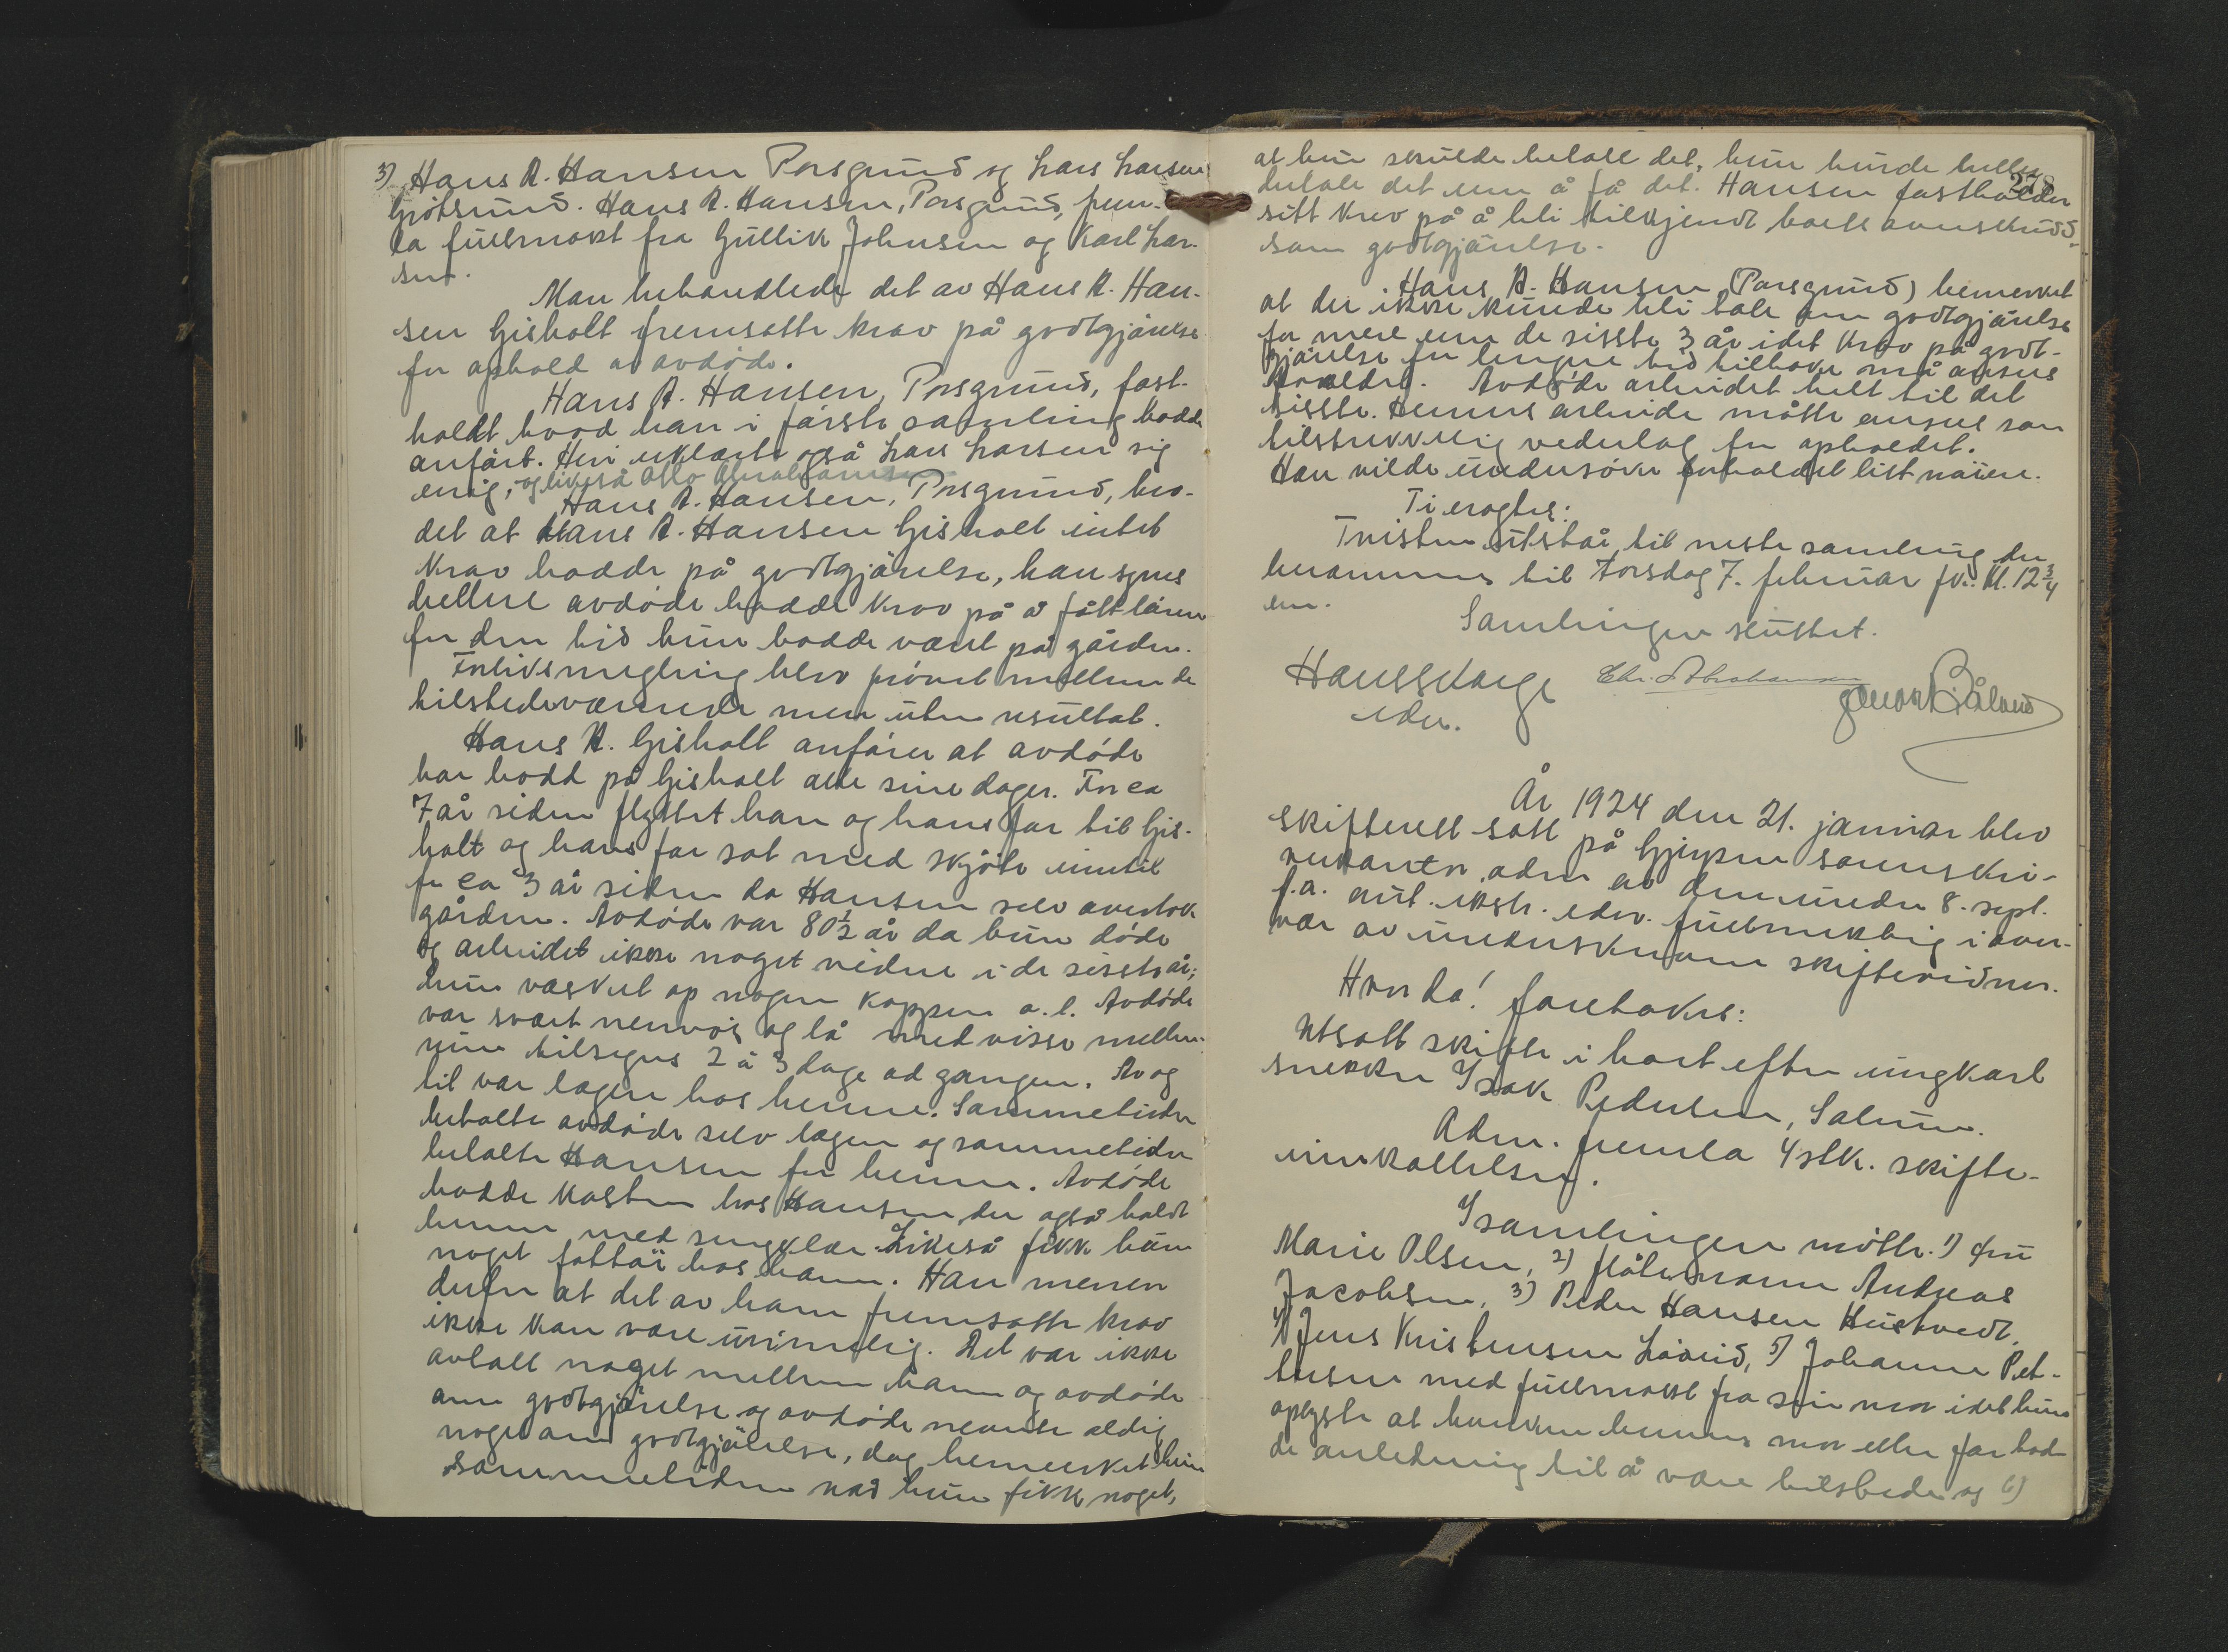 3) Hans A. Hansen Porsgrund og Lars Larsen
Grøtsund. Hans A. Hansen, Porsgrund, frem-
la fullmakt fra Gullik Johnsen og Karl Lar-
sen.
Man behandlede det av Hans A. Han-
sen Gisholt fremsatte krav på godtgjörelse
for ophold av avdøde.
Hans A. Hansen, Porsgrund, fast-
holdt hvad han i första samling hadde
anført. Heri erklærte også Lars Larsen sig
enig, og likeså Olto Abrahamsen
Hans A. Hansen, Porsgrund, hev-
det at Hans A. Hansen Gisholt intet
krav hadde på godtgjörelse, han synes
hellere avdøde hadde krav på å fått lönn
for den tid hun hadde vært på gården.
Forliksmegling blev prövet mellem de
tilstedeværende men uten resultat.
Hans A. Gisholt anförer at avdöde
har bodd på Gisholt alle sine dager. For ca
7 år siden flyttet han og hans far til Gis-
holt og hans far sat med skjöte inntil
for ca 3 år siden da Hansen selv overtok
gården. Avdøde var 80½ år da hun döde
og arbeidet ikke noget videre i de siste år;
hun vasket op nogen kopper o. l. Avdøde
var svært nervøs og lå med visse mellem-
rum tilsengs 2 à 3 dage ad gangen. Av og
til var lægen hos henne. Sommetider
betalte avdøde selv lægen og sommetider
betalte Hansen for henne. Avdøde
hadde kosten hos Hansen der også holdt
henne med sengklær. Likeså fikk hun
noget fottöi hos ham. Han mener
derfor at det av ham fremsatte krav
ikke kan være urimelig. Det var ikke
avtalt noget mellem ham og avdøde
om godtgjörelse og avdøde nevnte aldrig
noget om godtgjörelse, dog bemerket hun
sommetider når hun fikk noget,
278
at hun skulde betale det, hun burde heller
betale det enn å få det. Hansen fastholder
sitt krav på å bli tilkjendt boets overskudd
som godtgjörelse.
Hans A. Hansen (Porsgrund) bemerket
at der ikke kunde bli tale om godtgjörelse
for mere enn de siste 3 år idet krav på godt-
gjörelse for lengre tid tilbake må ansees
foreldet. Avdøde arbeidet helt til det
siste. Hennes arbeide måtte ansees som
tilstrekkelig vederlag for opholdet.
Han vilde undersöke forholdet litt nöiere.
Ti eragtes:
Tvisten utstår til neste samling der
berammes til Torsdag 7. februar fk. kl. 12¾
em.
Samlingen sluttet.
Hansskarge
edv.
Chr. Abrahamsen
År 1924 den 21. januar blev
skifterett satt på Gjerpen sorenskri-
verkontor, adm av den under 8. sept.
f.a. aut. ekstr. edsv. fullmektig i over-
vær av underskrevne skiftevidner.
Hvor da! foretokes:
Utsatt skifte i boet efter ungkarl
snekker Isak Pedersen, Solum.
Adm. fremla 4 stk. skifte-
innkallelser.
I samlingen mötte. 1) fru
Marie Olsen, 2) flåtemann Andreas
Jacobsen, 3) Peder Hansen Hustvedt,
4) Jens Kristensen Löveid, 5) Johanne Pet-
tersen med fullmakt fra sin mor idet hun
oplyste at hverken hennes mor eller far had-
de anledning til å være tilstede og 6)